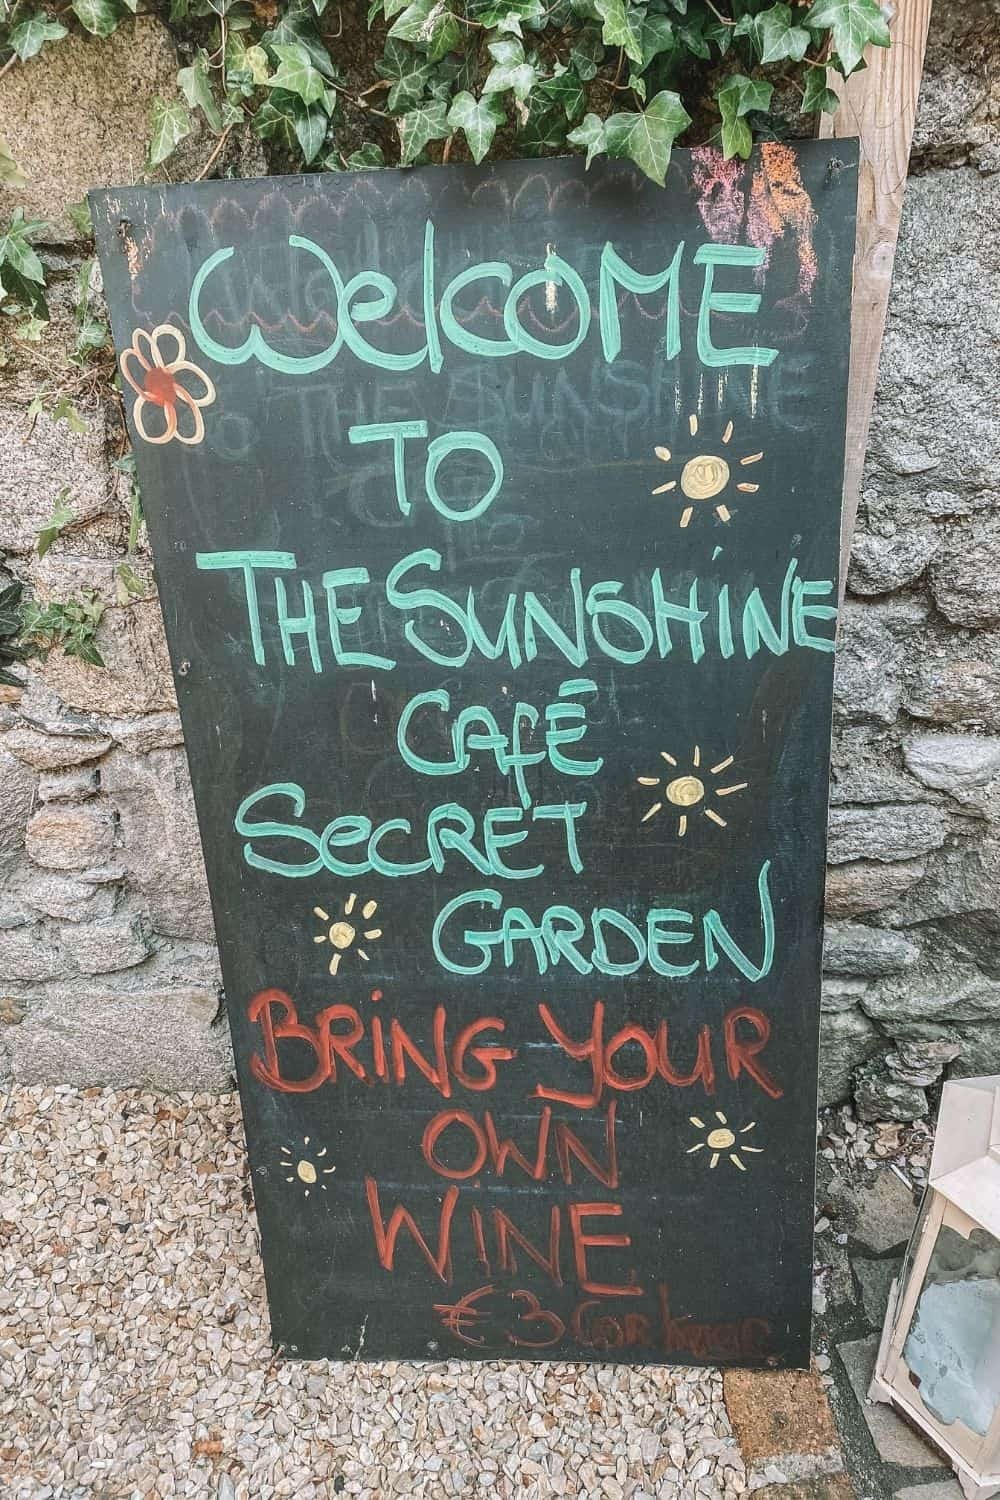 Welcome
To
The Sunshine
Café
Secret
Garden
Bring Your
Own
Wine
€3 Corkage